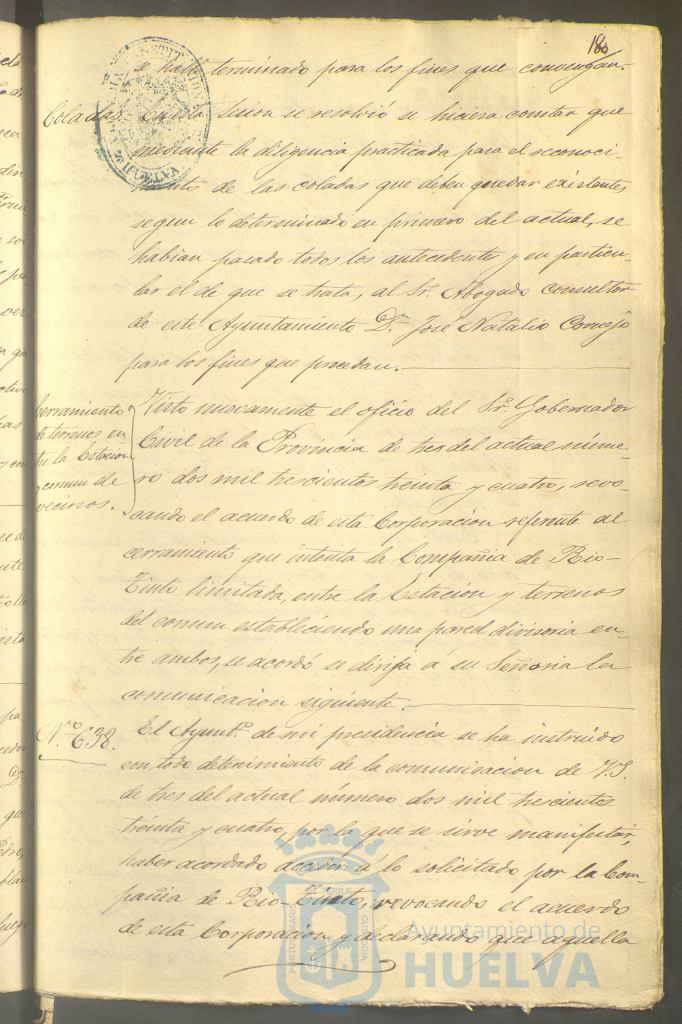 180
se halla terminado para los fines que convengan.
Coladas. En esta Sesion se resolvió se hiciera constar que
mediante la diligencia practicada para el reconoci-
miento de las coladas que deben quedar existentes
segun lo determinado en primero del actual, se
habian pasado todos los antecedentes y en particu-
lar el de que se trata, al Sr. Abogado consultor
de este Ayuntamiento Dn. José Natalio Cornejo
para los fines que procedan.
Cerramiento
de terrenos en
tre la Estacion
y comun de
vecinos.
Visto nuevamente el oficio del Sr. Gobernador
Civil de la Provincia de tres del actual núme-
ro dos mil trescientos treinta y cuatro, revo-
cando el acuerdo de esta Corporacion referente al
cerramiento que intenta la Compañia de Rio-
Tinto limitada, entre la Estacion y terrenos
del comun estableciendo una pared divisoria en-
tre ambos, se acordó se dirija á su Señoria la
comunicacion siguiente.
N.º 638.
El Ayunto. de mi presidencia se ha instruido
con todo detenimiento de la comunicacion de V.S.
de tres del actual número dos mil trescientos
treinta y cuatro, por la que se sirve manifestar,
haber acordado acceder á lo solicitado por la Com-
pañia de Rio-Tinto, revocando el acuerdo
de esta Corporacion y declarando que aquella
HUELVA
PORTUS MARIS
ET TERRÆ
CUSTODIA
Ayuntamiento de
HUELVA